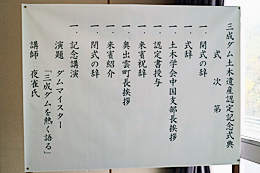 三成ダム土木遺産認定記念式典
式次第
一．開式の辞
一．式辞
一．土木学会中国支部長挨拶
一．認定書授与
一．来賓祝辞
一．奥出雲町長挨拶
一．来賓紹介
一．閉式の辞
一．記念講演
演題　ダムマイスター
「三成ダムを熱く語る」
講師　夜雀氏